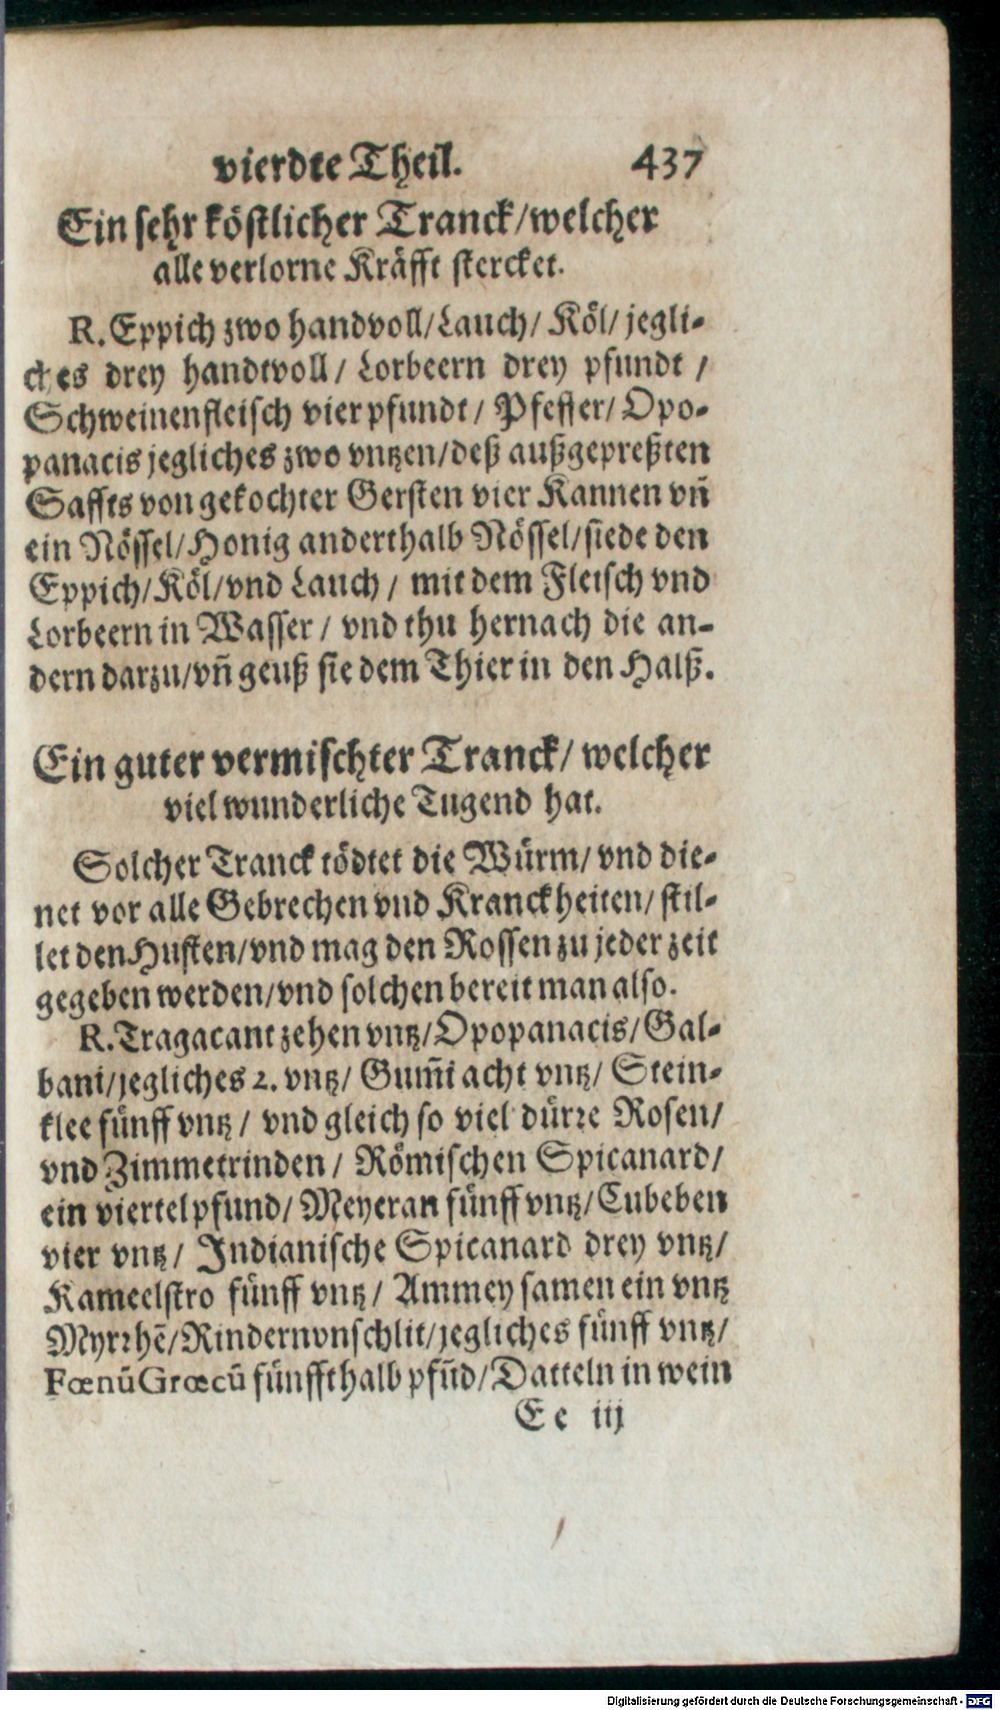 vierdte Theil. 437
Ein sehr köstlicher Tranck/welcher
alle verlorne Kräfft stercket.
R. Eppich zwo handvoll/Lauch/ Köl/ jegli-
ches drey handtvoll/ Lorbeern drey pfundt /
Schweinenfleisch vier pfundt/ Pfeffer/ Opo-
panacis jegliches zwo vntzen/deß außgepreßten
Saffts von gekochter Gersten vier Kannen vn̄
ein Nössel/Honig anderthalb Nössel/siede den
Eppich/Köl/vnd Lauch/ mit dem Fleisch vnd
Lorbeern in Wasser/ vnd thu hernach die an-
dern darzu/vn̄ geuß sie dem Thier in den Halß.
Ein guter vermischter Tranck/ welcher
viel wunderliche Tugend hat.
Solcher Tranck tödtet die Würm/ vnd die-
net vor alle Gebrechen vnd Kranckheiten/ stil-
let den Husten/vnd mag den Rossen zu jeder zeit
gegeben werden/vnd solchen bereit man also.
R. Tragacant zehen vntz/Opopanacis/Gal-
bani/jegliches 2. vntz/ Gum̄i acht vntz/ Stein-
klee fünff vntz/ vnd gleich so viel dürre Rosen/
vnd Zimmetrinden/ Römischen Spicanard/
ein viertelpfund/ Meyeran fünff vntz/Cubeben
vier vntz/ Indianische Spicanard drey vntz/
Kameelstro fünff vntz/ Ammey samen ein vntz
Myrrhē/Rindernvnschlit/jegliches fünff vntz/
Fœnūgrœcū fünffthalb pfūd/Datteln in wein
Ee iij
Digitalisierung gefördert durch die Deutsche Forschungsgemeinschaft - DFG